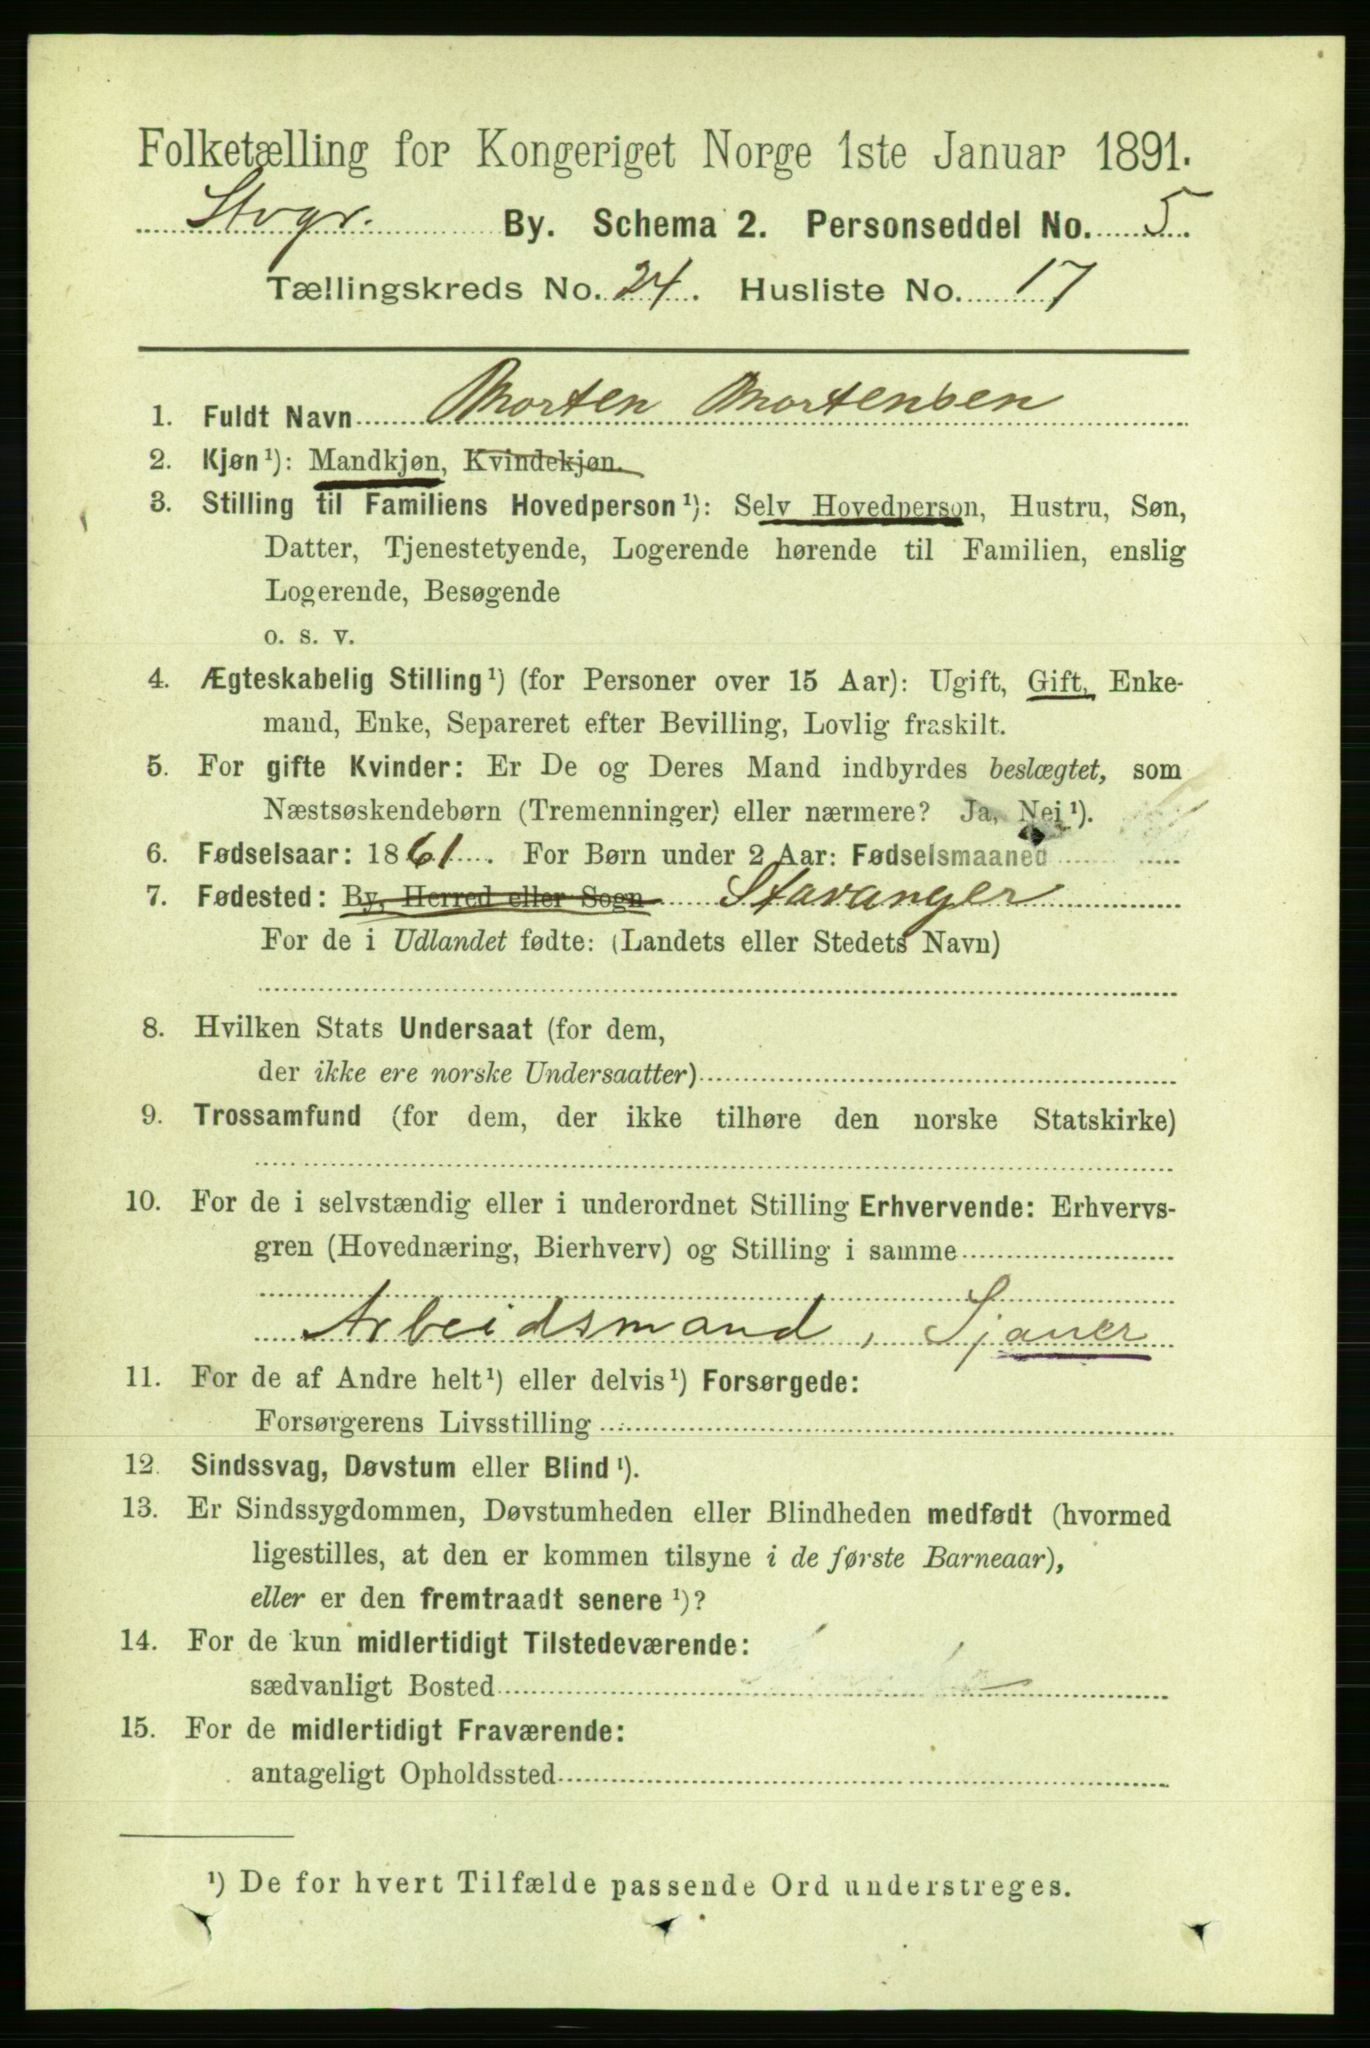 Folketælling for Kongeriget Norge 1ste Januar 1891.
Stvgr. By. Schema 2. Personseddel No. 5.
Tællingskreds No. 24. Husliste No. 17
1. Fuldt Navn Morten Mortensen
2. Kjøn¹): Mandkjøn, Kvindekjøn.
3. Stilling til Familiens Hovedperson¹): Selv Hovedperson, Hustru, Søn,
Datter, Tjenestetyende, Logerende hørende til Familien, enslig
Logerende, Besøgende
o. s. v.
4. Ægteskabelig Stilling¹) (for Personer over 15 Aar): Ugift, Gift, Enke-
mand, Enke, Separeret efter Bevilling, Lovlig fraskilt.
5. For gifte Kvinder: Er De og Deres Mand indbyrdes beslægtet, som
Næstsøskendebørn (Tremenninger) eller nærmere? Ja, Nei¹).
6. Fødselsaar: 1861. For Børn under 2 Aar: Fødselsmaaned
7. Fødested: By, Herred eller Sogn Stavanger
For de i Udlandet fødte: (Landets eller Stedets Navn)
8. Hvilken Stats Undersaat (for dem,
der ikke ere norske Undersaatter)
9. Trossamfund (for dem, der ikke tilhøre den norske Statskirke)
10. For de i selvstændig eller i underordnet Stilling Erhvervende: Erhvervs-
gren (Hovednæring, Bierhverv) og Stilling i samme
Arbeidsmand, Sjauer
11. For de af Andre helt¹) eller delvis¹) Forsørgede:
Forsørgerens Livsstilling
12. Sindssvag, Døvstum eller Blind¹).
13. Er Sindssygdommen, Døvstumheden eller Blindheden medfødt (hvormed
ligestilles, at den er kommen tilsyne i de første Barneaar),
eller er den fremtraadt senere¹)?
14. For de kun midlertidigt Tilstedeværende:
sædvanligt Bosted
15. For de midlertidigt Fraværende:
antageligt Opholdssted
¹) De for hvert Tilfælde passende Ord understreges.